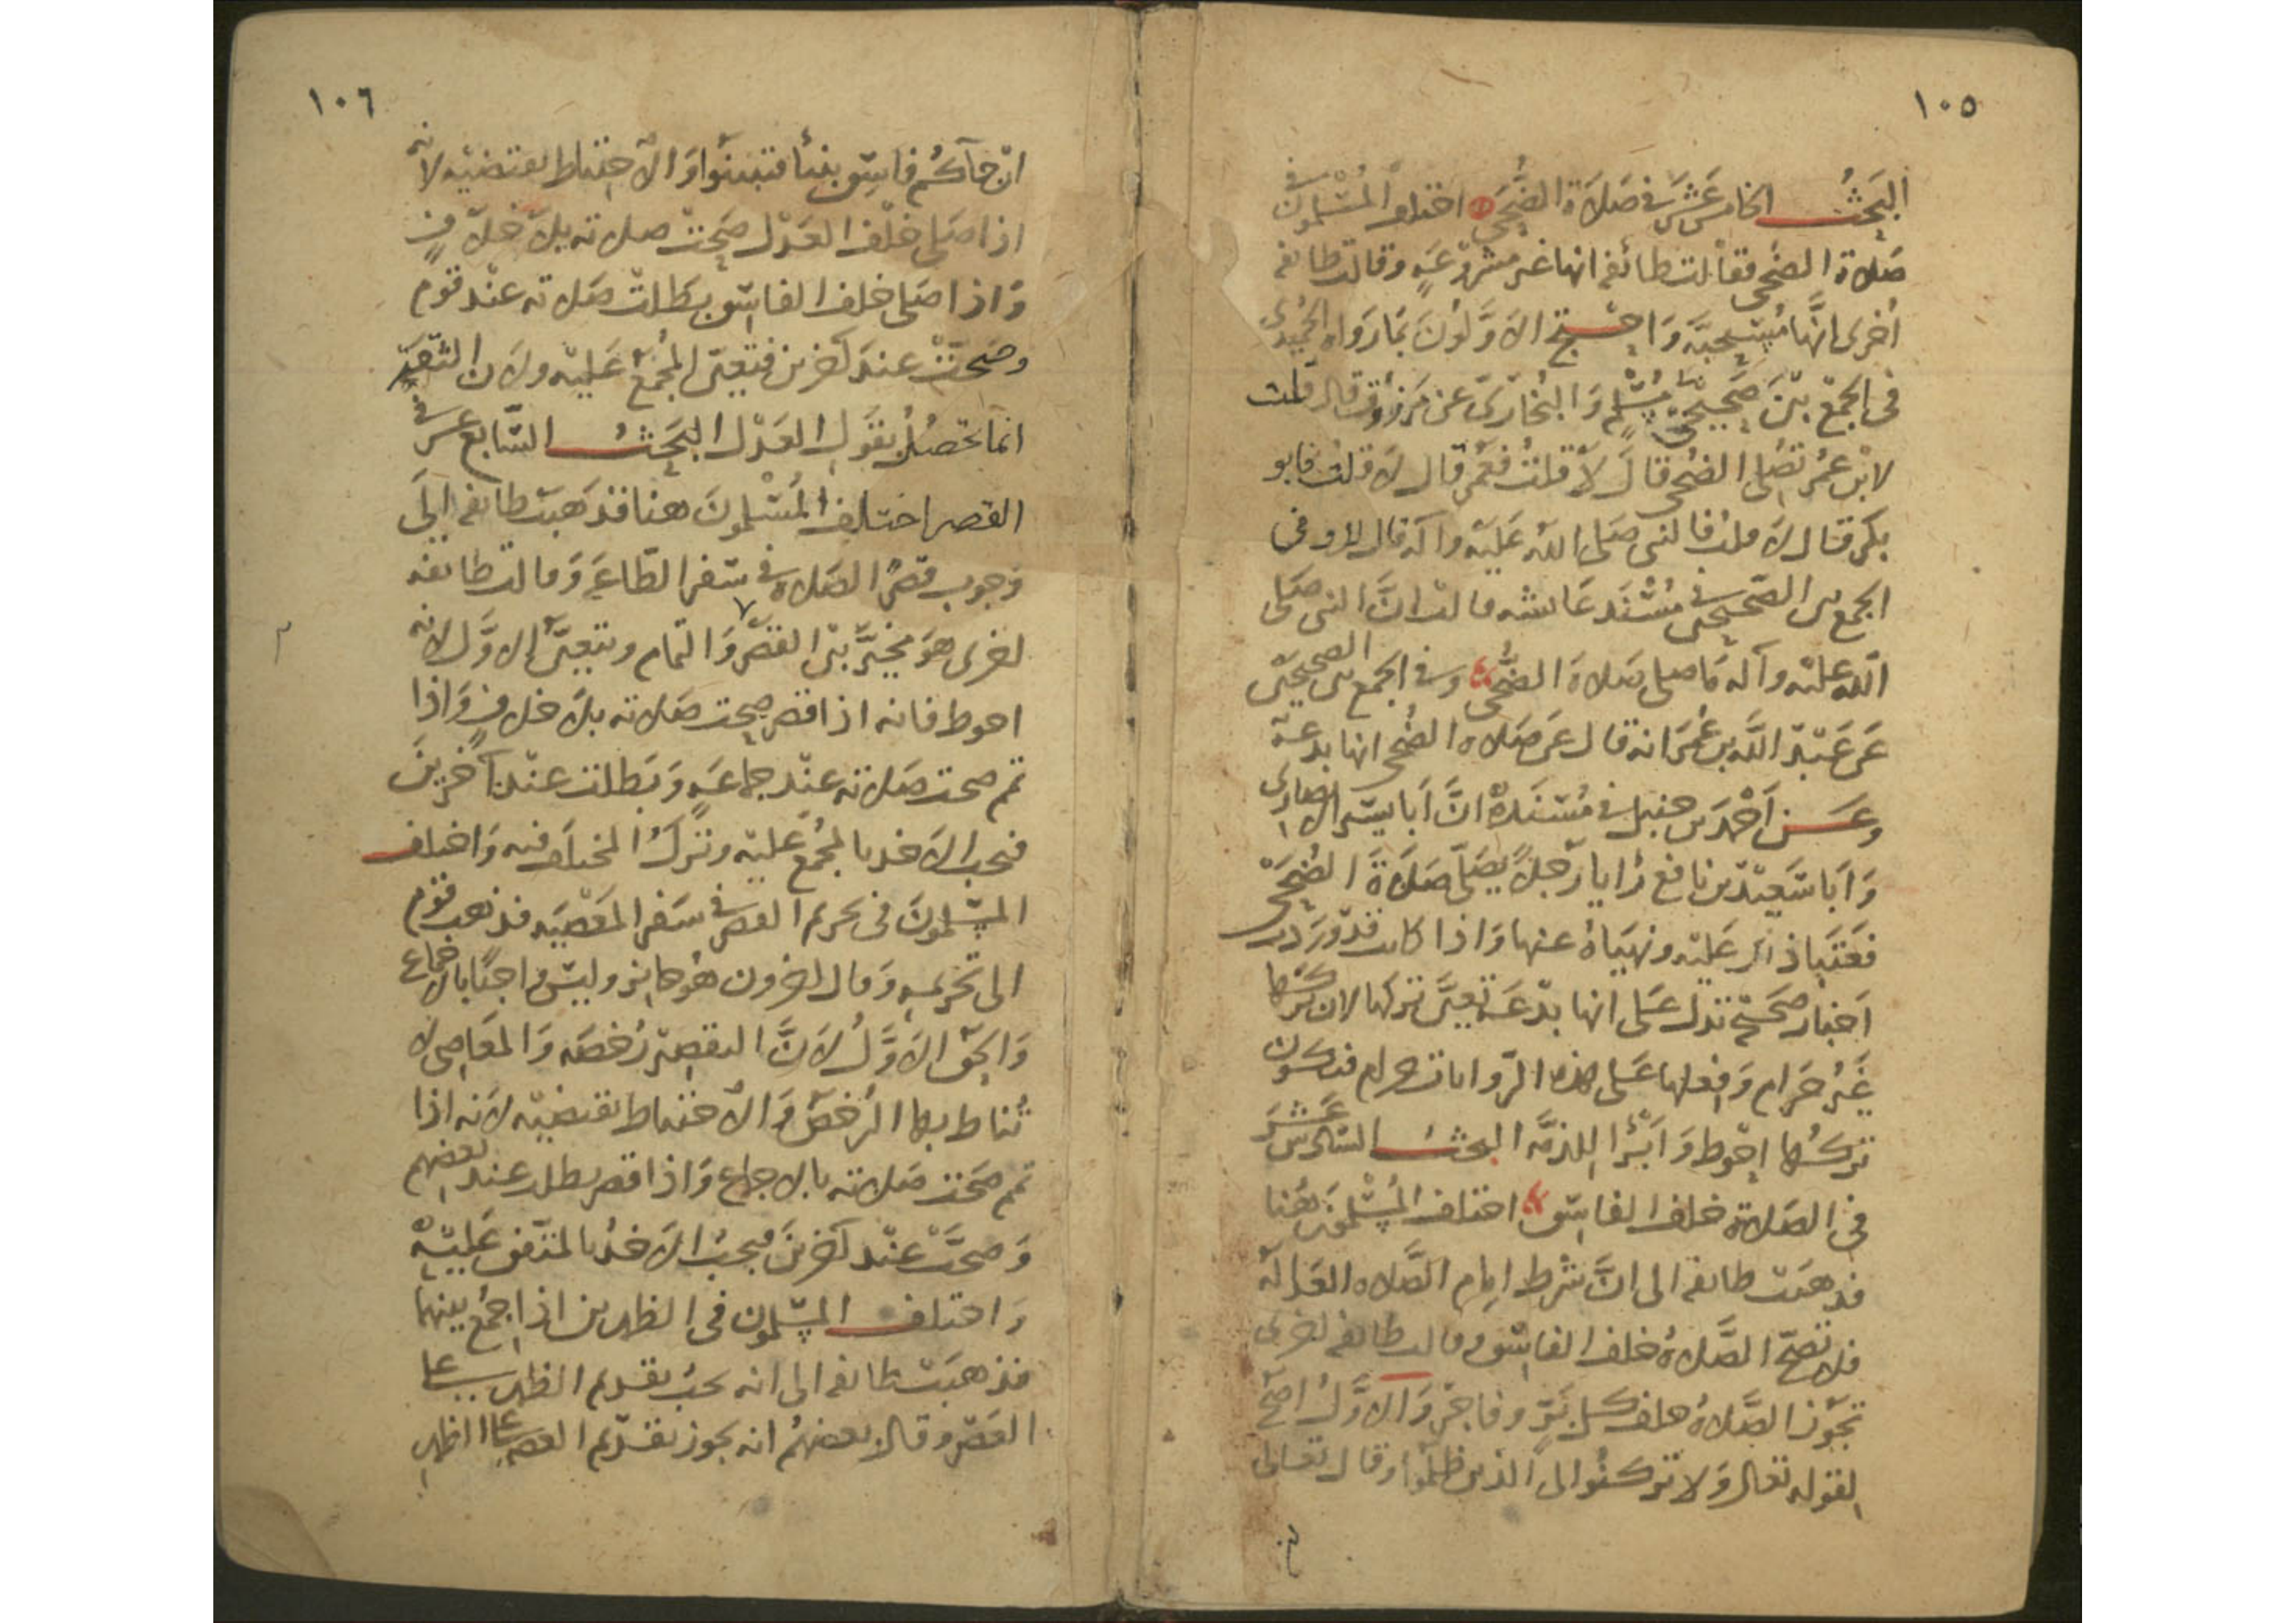 ١٠٥
البَحثُ الخامس عَشَر في صَلاة الضُّحَى اختلف المُسْلمون في
صَلاة الضحى فقالت طائفه انها غير مشروعَةٍ وقالت طائفه
اُخرى انَّها مُستحبَّه وَاحتج الاوَّلوُنَ بمَا رَواه الحُميَدى
فى الجمْع بيْنَ صَحيحَىْ مُسْلم وَالبُخارىّ عن مَرزوُق قال قلت
لابْن عُمَر تصَلى الضُحى قالَ لاَ قلتُ فعُمَر قال لاَ قلتُ فابو
بكر قال لاَ قلتُ فالنبى صَلى اللهُ عَليْه وآله قال لا وفى
الجمع بين الصّحيحيْن في مُسْنَد عَائشه قالت انَّ النبى صَلى
اللّه عليْه وآله مَا صلى صَلاة الضُّحى وفى الجمع بين الصحيحيْن
عَن عَبْد اللَّه بن عُمَر انه قال عَن صَلاه الضُحى انها بدعة
وعَن اَحْمَد بن حنبل في مُسْنَدهْ انَّ اَبا بشير الانصارى
وَاَبا سَعيْد بن نافع رَايا رَجلاً يصَلّى صَلاَةَ الضُحَىْ
فعَتبا ذلك عَليْه ونهيَاهُ عنها وَاذا كانت قدْ وَرَدت
اَخبار صَحيْحَه تدل عَلى انها بدْعَة تعيَّن تركها لان تركها
غيْر حَرام وَفعلها عَلى هذه الرّوايات حرام فيكون
تركُها احْوط وَاَبْرَا للذمَّه البحثُ السّادس عَشَر
فى الصَلاة خلف الفاسق اختلف المُسْلموُن هُنا
فذهبَت طائفه الى انَّ شرط امام الصَّلاه العَدالَة
فلا تصحّ الصَّلاهُ خلف الفاسق وقالت طائفه اخرى
تجوُز الصَّلاهُ خلف كل بَرّ وفاجرْ وَالاوَّلُ اصَحّ
لقوله تعالى وَلا تركنُوا الى الذين ظلمُوا وقال تعَالى
١٠٦
انْ جآءكُم فاسِق بنبأ فتبيَنُوا وَالاحتياط يقتضيْه لانه
اذا صَلى خلف العَدْل صَحتْ صلاته بلا خلافٍ
وَاذا صَلى خلف الفاسق بطَلتْ صَلاته عنْد قوم
وصَحتْ عندَ آخرين فتعيّن المُجمَعُ عَليْه ولاَن التقيّد
انما تحصُلُ بقول العَدْل البَحَثُ السّابع عشر في
القصر اختلف المُسْلموُنَ هنا فذهبَت طائفه الىَ
وَجوب قصْر الصَلاة في سَفر الطّاعَةِ وَقالت طائفه
اخرى هوَ مخيَّر بيْن القصْر وَالتمام ويتعيَّن الاوَّل لانه
احوط فانه اذا قصر صحت صَلاته بلا خلافٍ وَاذا
تم صحت صَلاته عنْد جماعَةٍ وَبَطلت عنْد آخرينَ
فيجب الاَخذ بالمُجْمع عَليْه وترْكُ المختلَف فيه وَاختلف
المسْلموُنَ فى تحريم القصر في سَفر المَعْصيَه فذهب قوم
الى تحْريمه وَقال اخرون هوُ جايز وليْس واجبًا بالاجماع
وَالحَق الاوَّلُ لاَنَّ التقصيْر رُخصَه وَالمعَاصى لا
تُناط بها الرُخصْ وَالاحتياط يقتضيْه لاَنه اذا
تمم صَحّت صَلاته بالاجماع وَاذا قصر بطلت عند بعضهم
وَصحَّتْ عنْد آخرينَ فيجبُ الاَخذُ بالمتفق عَليْهْ
وَاختلف المسْلمون فى الظهرين اذا جُمع بينهما
فذهبَت طائفه الى انه يجبُ تقديم الظهر على
العَصْر وقال بعضهُم انه يجوز تقديم العَصر على الظهر